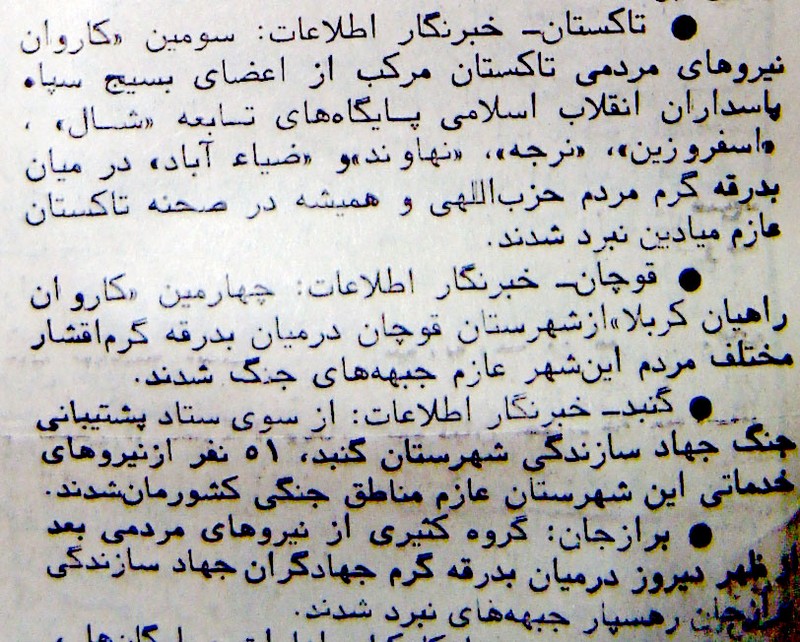 ● تاکستان_ خبرنگار اطلاعات: سومین «کاروان
نیروهای مردمی تاکستان مرکب از اعضای بسیج سپاه
پاسداران انقلاب اسلامی پـایگاه‌های تـابعه «شـال» ،
«اسفروزین»، «نرجه»، «نهاوند»و «ضیاء آباد» در میان
بدرقه گرم مردم حزب‌اللهی و همیشه در صحنه تاکستان
عازم میادین نبرد شدند.
● قوچان_ خبرنگار اطلاعات: چهارمین «کاروان
راهیان کربلا»ازشهرستان قوچان درمیان بدرقه گرم‌اقشار
مختلف مردم این‌شهر عازم جبهه‌های جنگ شدند.
● گنبد_ خبرنگار اطلاعات: از سوی ستاد پشتیبانی
جنگ جهاد سازندگی شهرستان گنبد، ۵۱ نفر ازنیروهای
خدماتی این شهرستان عازم مناطق جنگی کشورمان‌شدند.
● برازجان: گروه کثیری از نیروهای مردمی بعد
از ظهر دیروز درمیان بدرقه گرم جهادگران جهاد سازندگی
برازجان رهسپار جبهه‌های نبرد شدند.